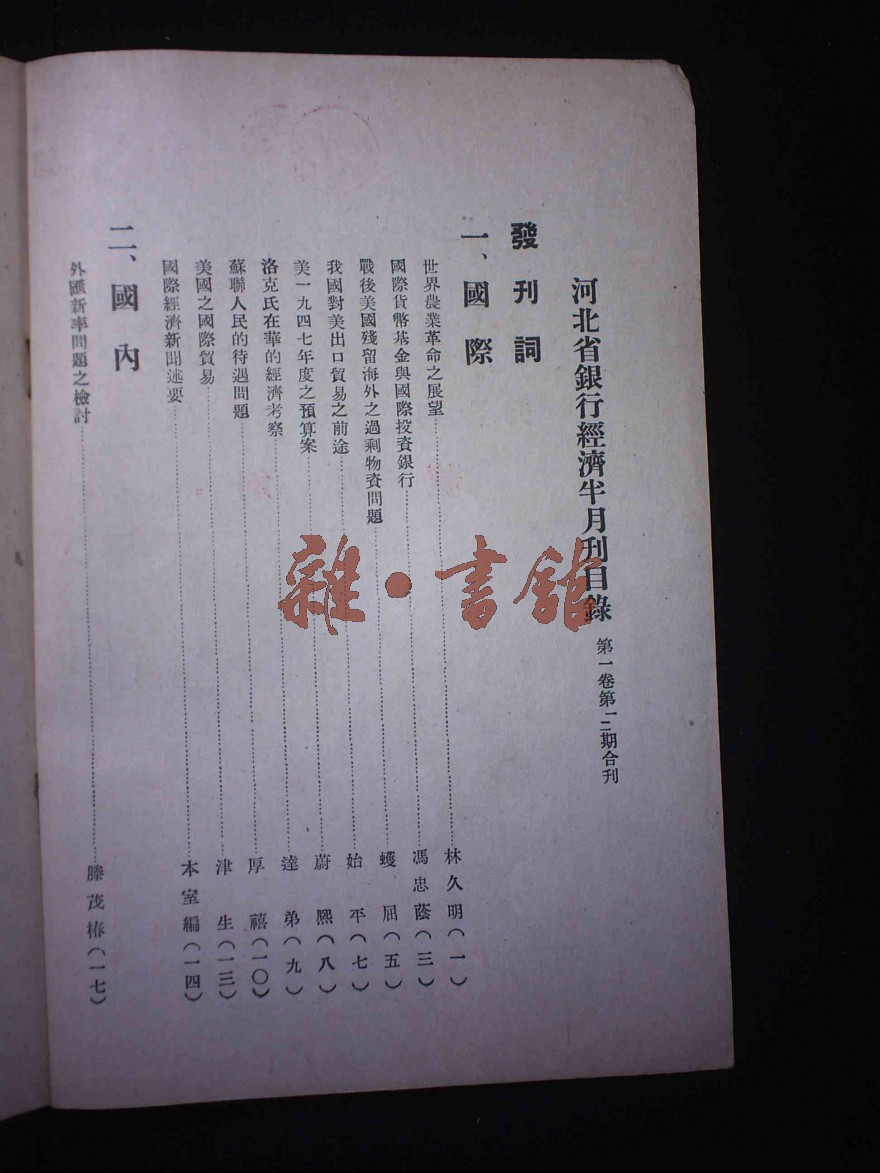 河北省銀行經濟半月刊目錄 第一卷第一二期合刊
發刊詞
一、國際
世界農業革命之展望……林久明(一)
國際貨幣基金與國際投資銀行……馮忠蔭(三)
戰後美國殘留海外之過剩物資問題……蠖屈(五)
我國對美出口貿易之前途……始平(七)
美一九四七年度之預算案……蔚熙(八)
洛克氏在華的經濟考察……達弟(九)
蘇聯人民的待遇問題……厚禧(一〇)
美國之國際貿易……津生(一三)
國際經濟新聞述要……本室編(一四)
二、國內
外匯新率問題之檢討……滕茂椿(一七)
雜·書館